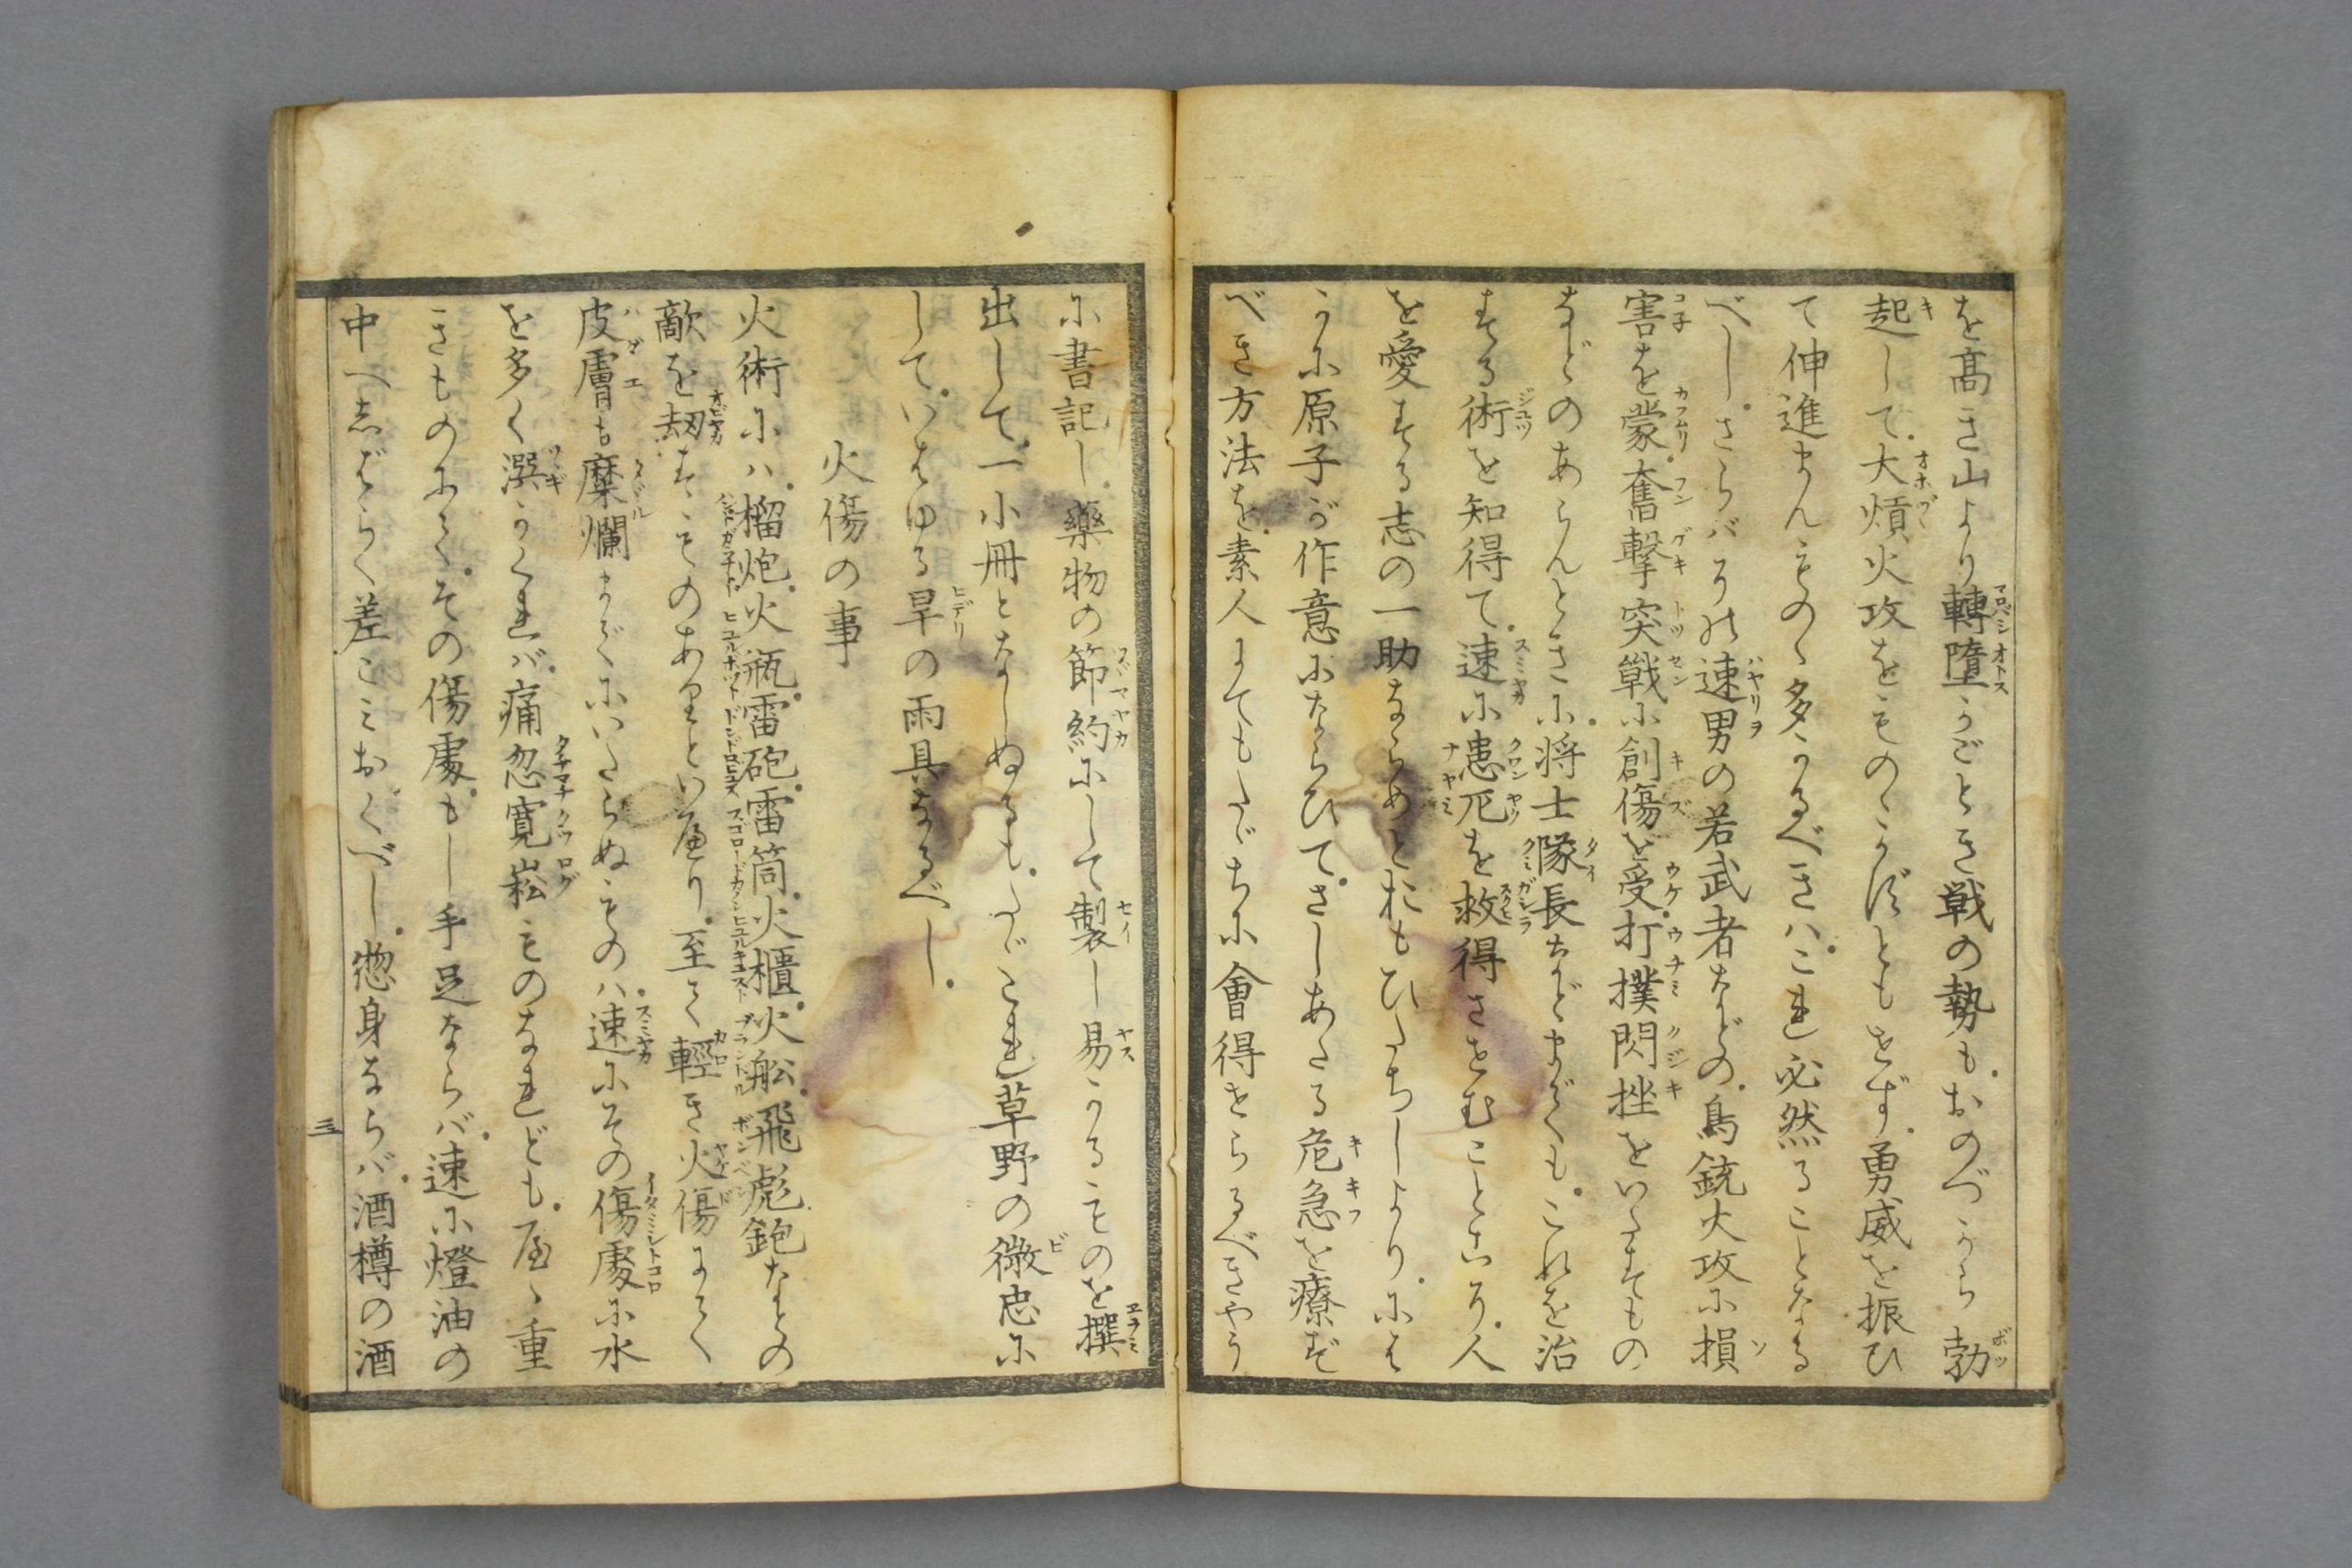 を高き山より轉墮かごとき戦の勢も。おのづから勃
起して。大熕火攻をものゝかずともせず。勇威を振ひ
て伸進まんものゝ多かるべきハ。これ必然ることなる
べし。さらバその速男の若武者などの。鳥銃火攻に損
害を蒙。奮撃突戦に創傷を受。打撲閃挫をいたすもの
などのあらんときに。将士隊長などまでも。これを治
する術を知得て。速に患厄を救得させむことこそ。人
を愛する志の一助ならめとおもひたちしより。には
かに原子が作意にならひて。さしあたる危急を療ず
べき方法を。素人にてもたゞちに會得せらるべきやう
に書記し。藥物の節約にして製し易かるものを撰
出して。一小冊となしぬるも。たゞこれ草野の微忠に
して。いはゆる旱の雨具なるべし。
火傷の事
火術にハ。榴炮。火瓶。雷砲。雷筒。火櫃。火舩。飛彪鉋なとの
敵を刼すものありといへり。至て輕き火傷にて
皮膚も糜爛までにいたらぬものハ。速にその傷處に水
を多く澆かくれバ。痛忽寛崧ものなれども。屋ゝ重
きものにて。その傷處。もし手足ならバ。速に燈油の
中へしばらく差こみおくべし。惣身ならバ。酒樽の酒
三